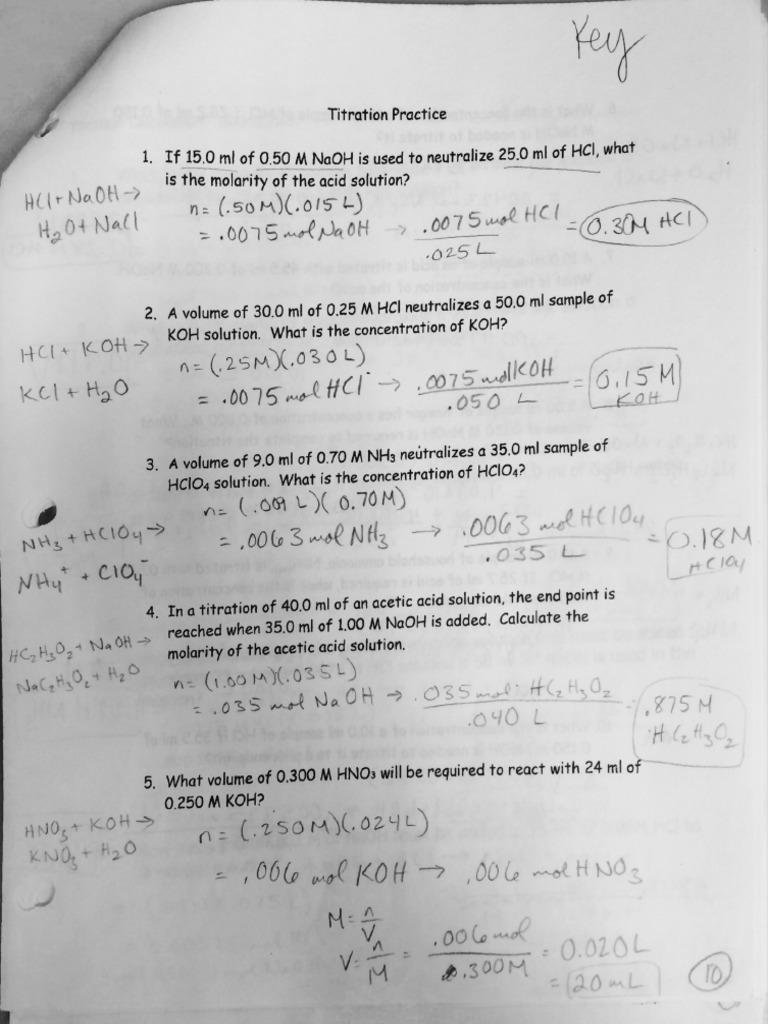 Key
Titration Practice
1. If 15.0 ml of 0.50 M NaOH is used to neutralize 25.0 ml of HCl, what
is the molarity of the acid solution?
HCl + NaOH →
H₂O + NaCl
n = (.50 M)(.015 L)
= .0075 mol NaOH → .0075 mol HCl
.025 L
= 0.30M HCl
2. A volume of 30.0 ml of 0.25 M HCl neutralizes a 50.0 ml sample of
KOH solution. What is the concentration of KOH?
HCl + KOH →
KCl + H₂O
n = (.25M)(.030 L)
= .0075 mol HCl → .0075 mol KOH
.050 L
= 0.15 M
KOH
3. A volume of 9.0 ml of 0.70 M NH₃ neutralizes a 35.0 ml sample of
HClO₄ solution. What is the concentration of HClO₄?
NH₃ + HClO₄ →
NH₄⁺ + ClO₄⁻
n = (.009 L)(0.70M)
= .0063 mol NH₃ → .0063 mol HClO₄
.035 L
= 0.18 M
HClO₄
4. In a titration of 40.0 ml of an acetic acid solution, the end point is
reached when 35.0 ml of 1.00 M NaOH is added. Calculate the
molarity of the acetic acid solution.
HC₂H₃O₂ + NaOH →
NaC₂H₃O₂ + H₂O
n = (1.00 M)(.035 L)
= .035 mol NaOH → .035 mol HC₂H₃O₂
.040 L
.875 M
HC₂H₃O₂
5. What volume of 0.300 M HNO₃ will be required to react with 24 ml of
0.250 M KOH?
HNO₃ + KOH →
KNO₃ + H₂O
n = (.250M)(.024L)
= .006 mol KOH → .006 mol HNO₃
M = n/V
V = n/M = .006 mol / .300M = 0.020L
= 20 mL
10